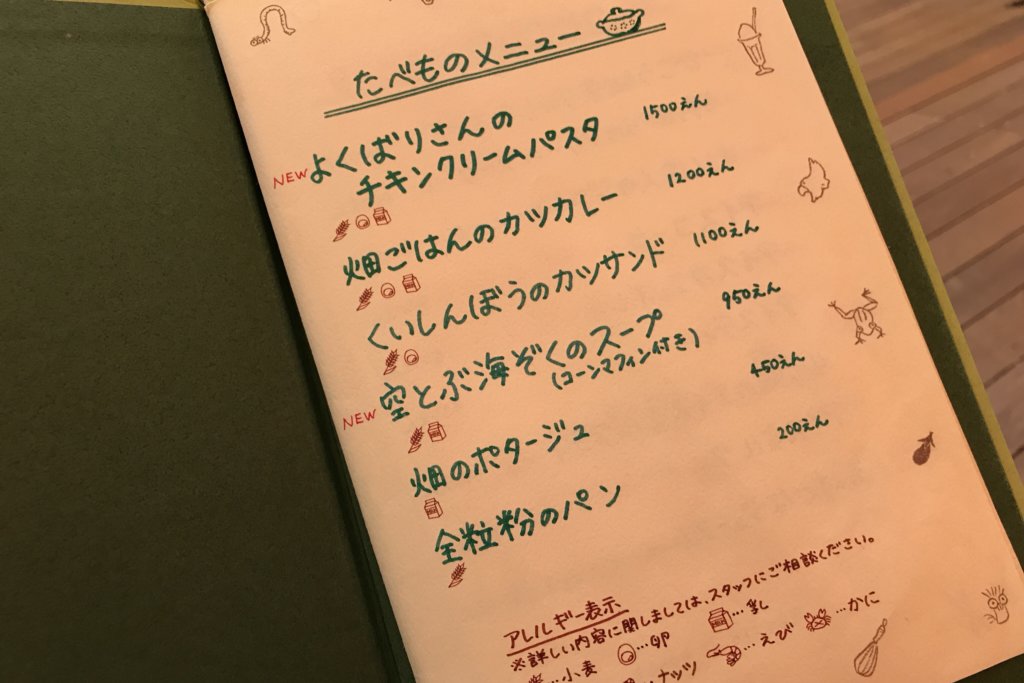 たべものメニュー
NEW よくばりさんの
チキンクリームパスタ 1500えん
畑ごはんのカツカレー 1200えん
くいしんぼうのカツサンド 1100えん
NEW 空とぶ海ぞくのスープ 950えん
(コーンマフィン付き)
畑のポタージュ 450えん
全粒粉のパン 200えん
アレルギー表示
※詳しい内容に関しましては、スタッフにご相談ください。
…小麦 …卵 …乳
…ナッツ …えび …かに